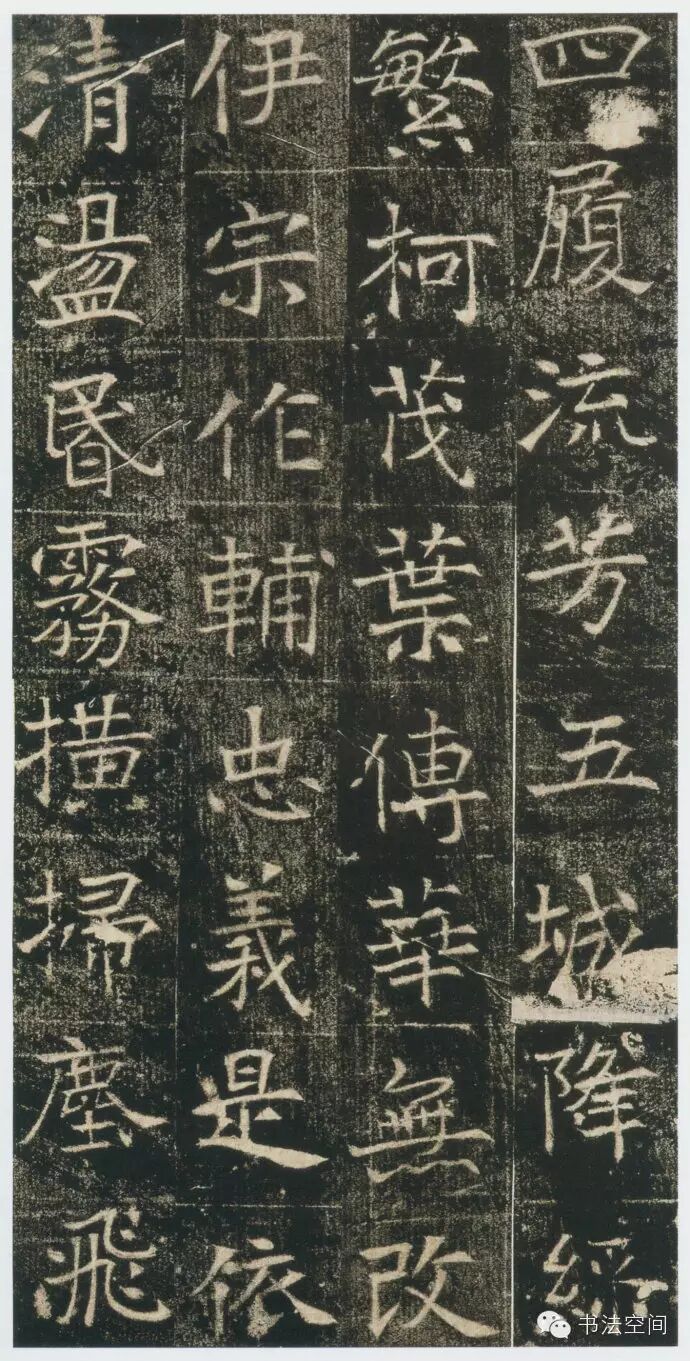 四履流芳五城降綵
繁柯茂葉傳華無改
伊宗作輔忠義是依
清盪昬霧橫掃塵飛
书法空间